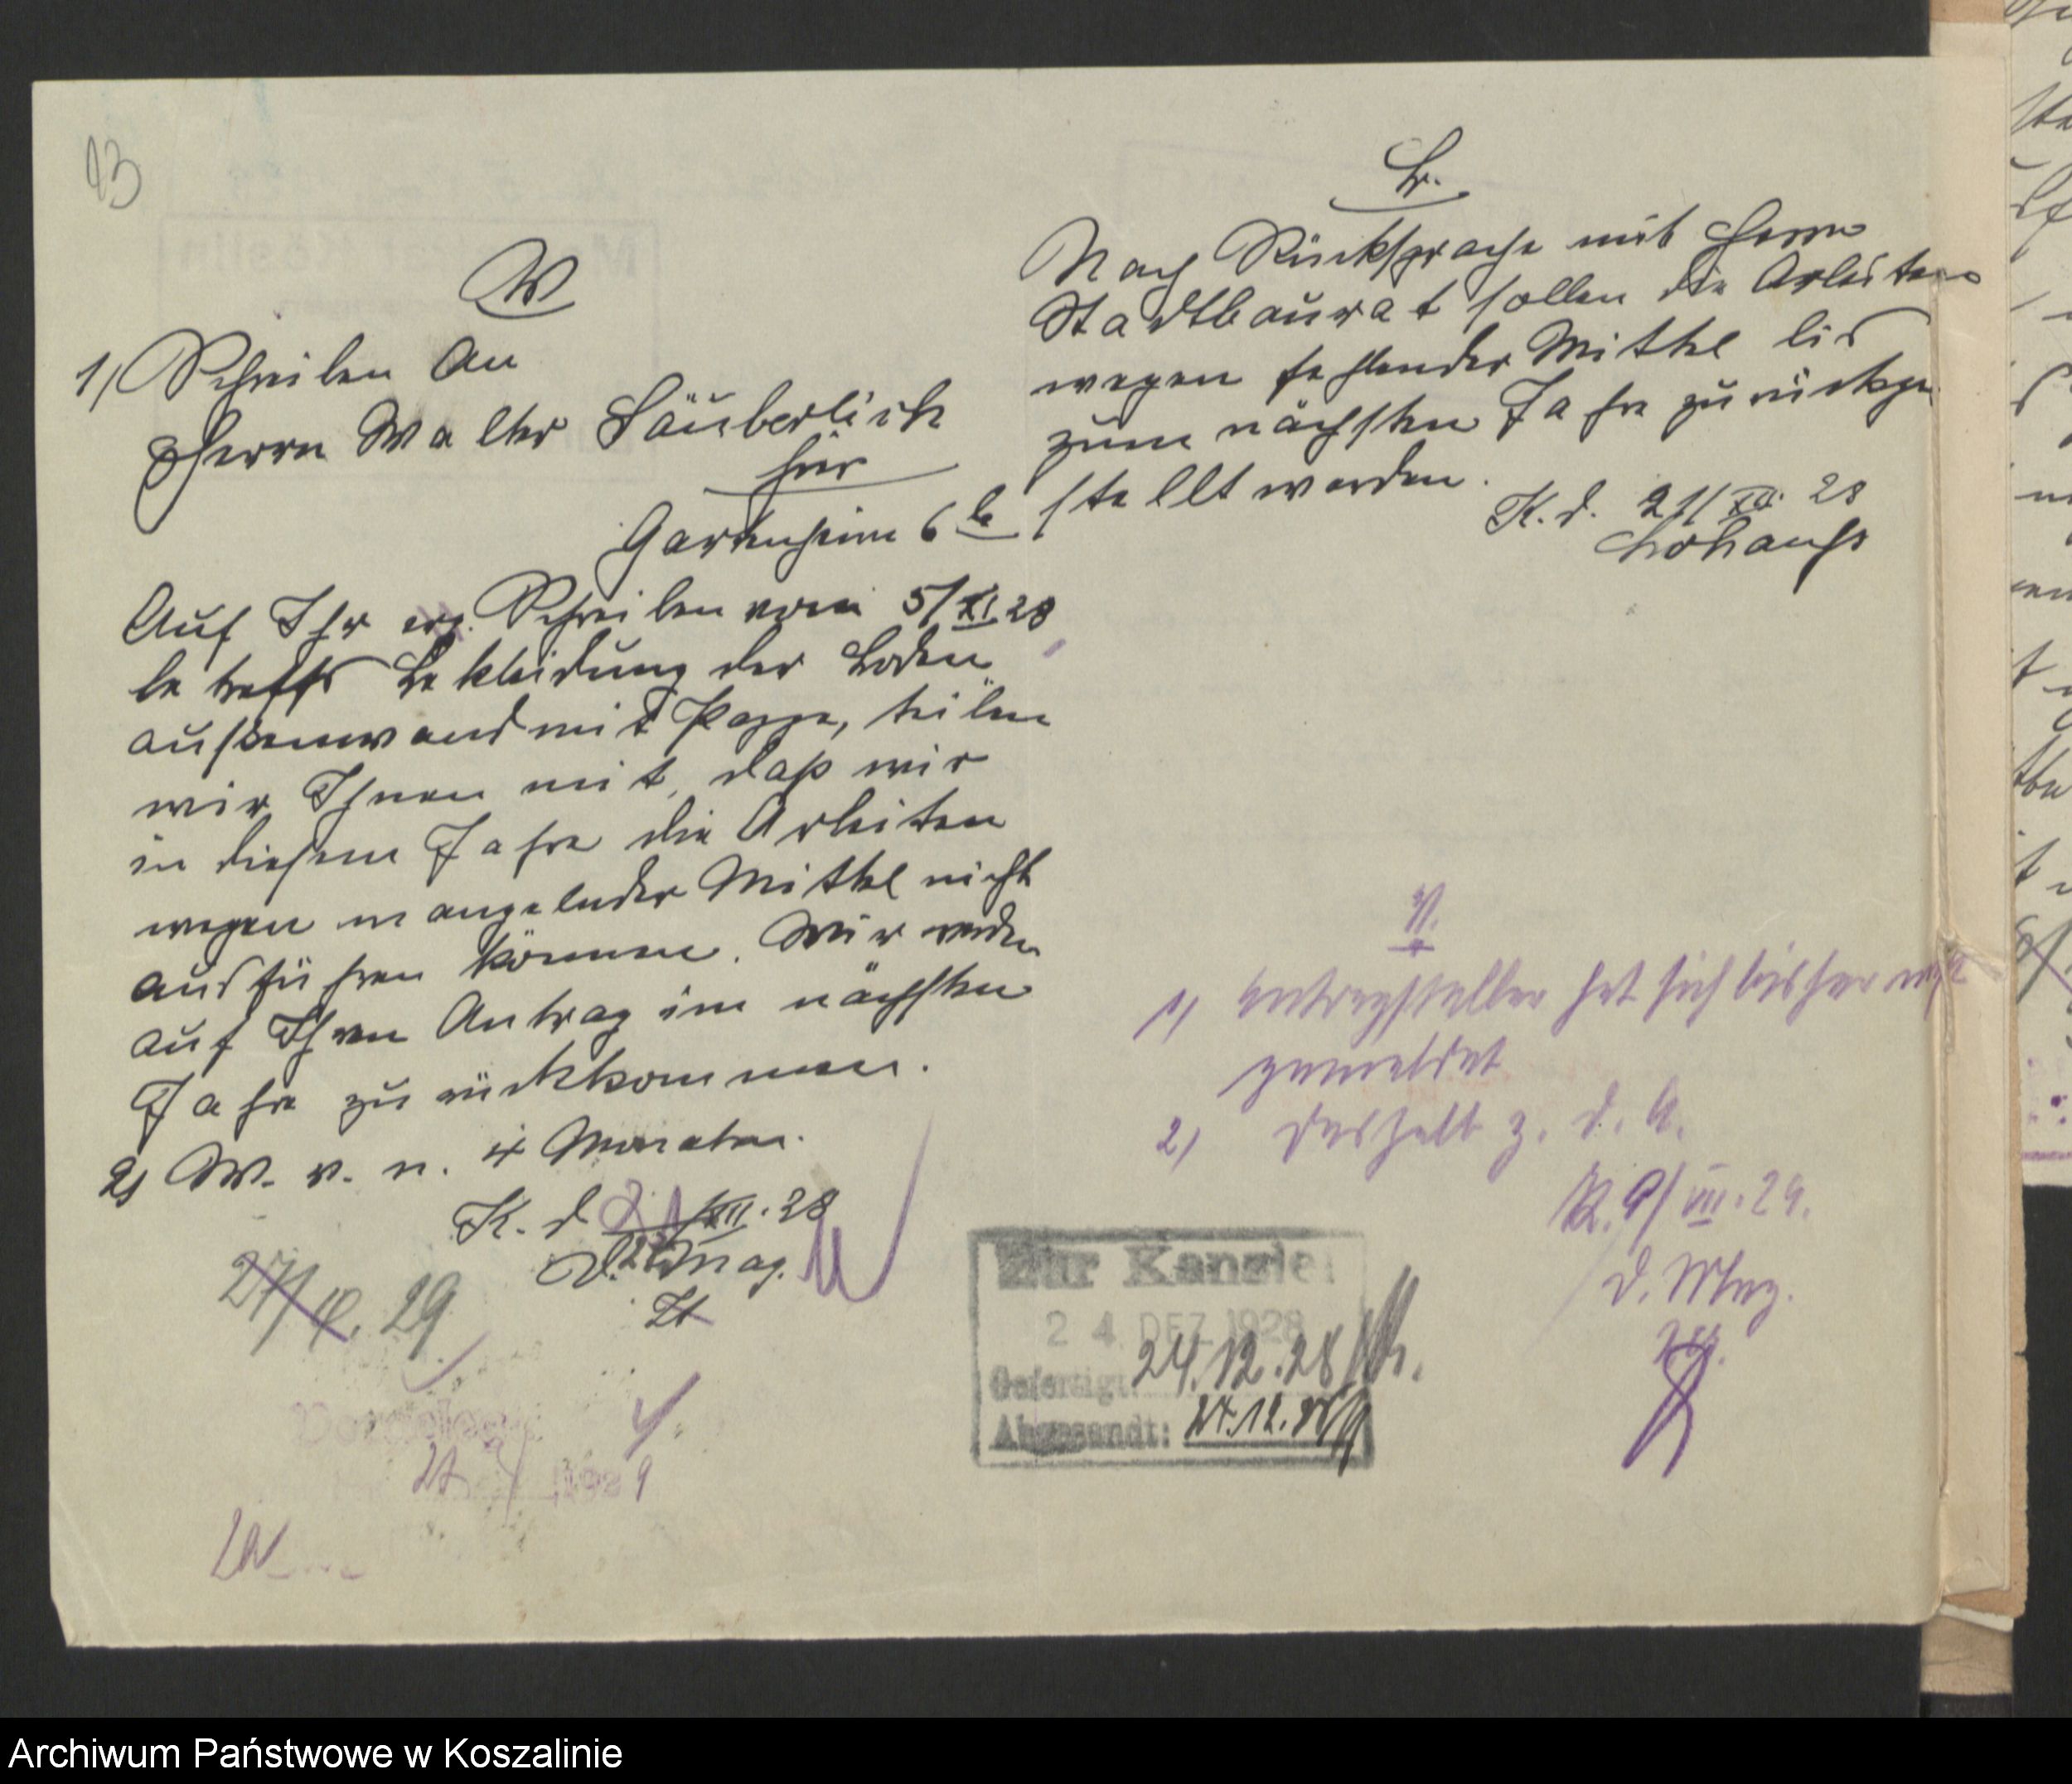 13
W
1) Schreiben an
Herrn Walter Säuberlich
hier
Gartenheim 6 b
Auf Ihr erg. Schreiben vom 5/XI.28
betreffs Bekleidung der Boden
aussenwand mit Pappe, teilen
wir Ihnen mit, daß wir
in diesem Jahre die Arbeiten
wegen mangelnder Mittel nicht
ausführen können. Wir werden
auf Ihren Antrag im nächsten
Jahre zurückkommen.
2) W. v. n. 4 Monaten.
K. d. XII.28
D. Mag.
27/4.29
1929
V.
Nach Rücksprache mit Herrn
Stadtbaurat sollen die Arbeiten
wegen fehlender Mittel bis
zum nächsten Jahre zurückge-
stellt werden.
K. d. 21/XII. 28
V.
1) Antragsteller hat sich bisher nicht
gemeldet
2) Deshalb z. d. A.
K. 9/VII.29.
D. Mag.
Zur Kanzlei
24 DEZ 1928
Gefertigt: 24.12.28
Abgesandt: 27.12.28
Archiwum Państwowe w Koszalinie